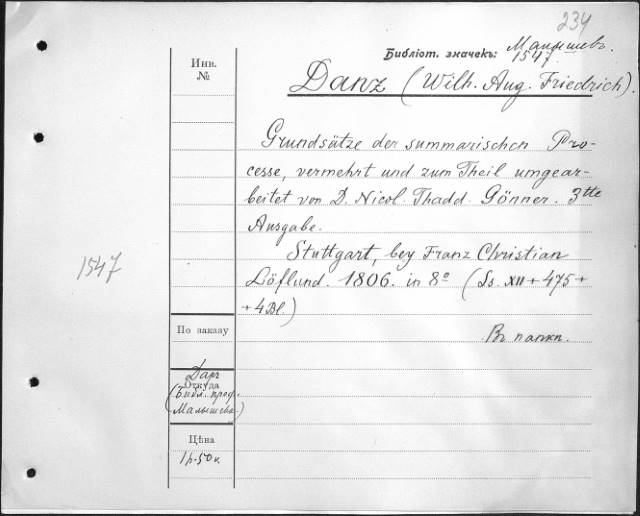 234
Библіот. значекъ: Малышевъ.
1547.
Инв.
№
Danz (Wilh. Aug. Friedrich).
Grundsätze der summarischen Pro-
cesse, vermehrt und zum Theil umgear-
beitet von D. Nicol. Thadd. Gönner. 3tte
Ausgabe.
Stuttgart, bey Franz Christian
Löflund. 1806. in 8º (Ss. XII + 475 +
+ 4 Bl.)
1547
По заказу
Въ папкѣ.
Даръ
Откуда
(Библ. проф.
Малышева)
Цѣна
1 р. 50 к